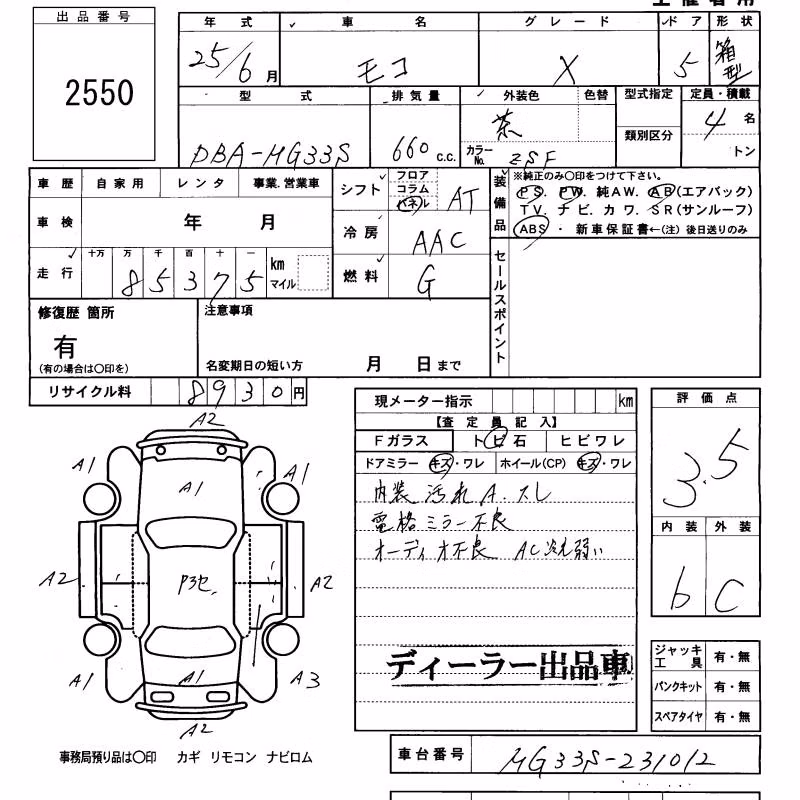 出品番号
2550
年式 車名 グレード ドア 形状
25/6月 モコ X 5 箱型
型式 排気量 外装色 色替 型式指定 定員・積載
類別区分
DBA-MG33S 660c.c. 茶 カラーNo. ZSF 4名
トン
車歴 自家用 レンタ 事業.営業車
車検 年 月
走行 十万 万 千 百 十 一
85375 km マイル
シフト フロア コラム パネル AT
冷房 AAC
燃料 G
装備品 ※純正のみ〇印をつけて下さい。
PS. PW. 純AW. AB(エアバック)
TV. ナビ. カワ. SR(サンルーフ)
ABS ・ 新車保証書←(注) 後日送りのみ
セールスポイント
修復歴 箇所
有
(有の場合は〇印を)
注意事項
名変期日の短い方 月 日まで
リサイクル料 8930円
現メーター指示 km
【査定員記入】
Fガラス トビ石 ヒビワレ
ドアミラー キズ・ワレ ホイール(CP) キズ・ワレ
内装 汚れA.スレ
電格ミラー不良
オーディオ不良 AC冷え弱い
ディーラー出品車
評価点
3.5
内装 外装
b C
ジャッキ工具 有・無
パンクキット 有・無
スペアタイヤ 有・無
A2
A1 A1 A1
A2 P3セ A2
A1 A1 A3
A2
事務局預り品は〇印 カギ リモコン ナビロム
車台番号 MG33S-231012